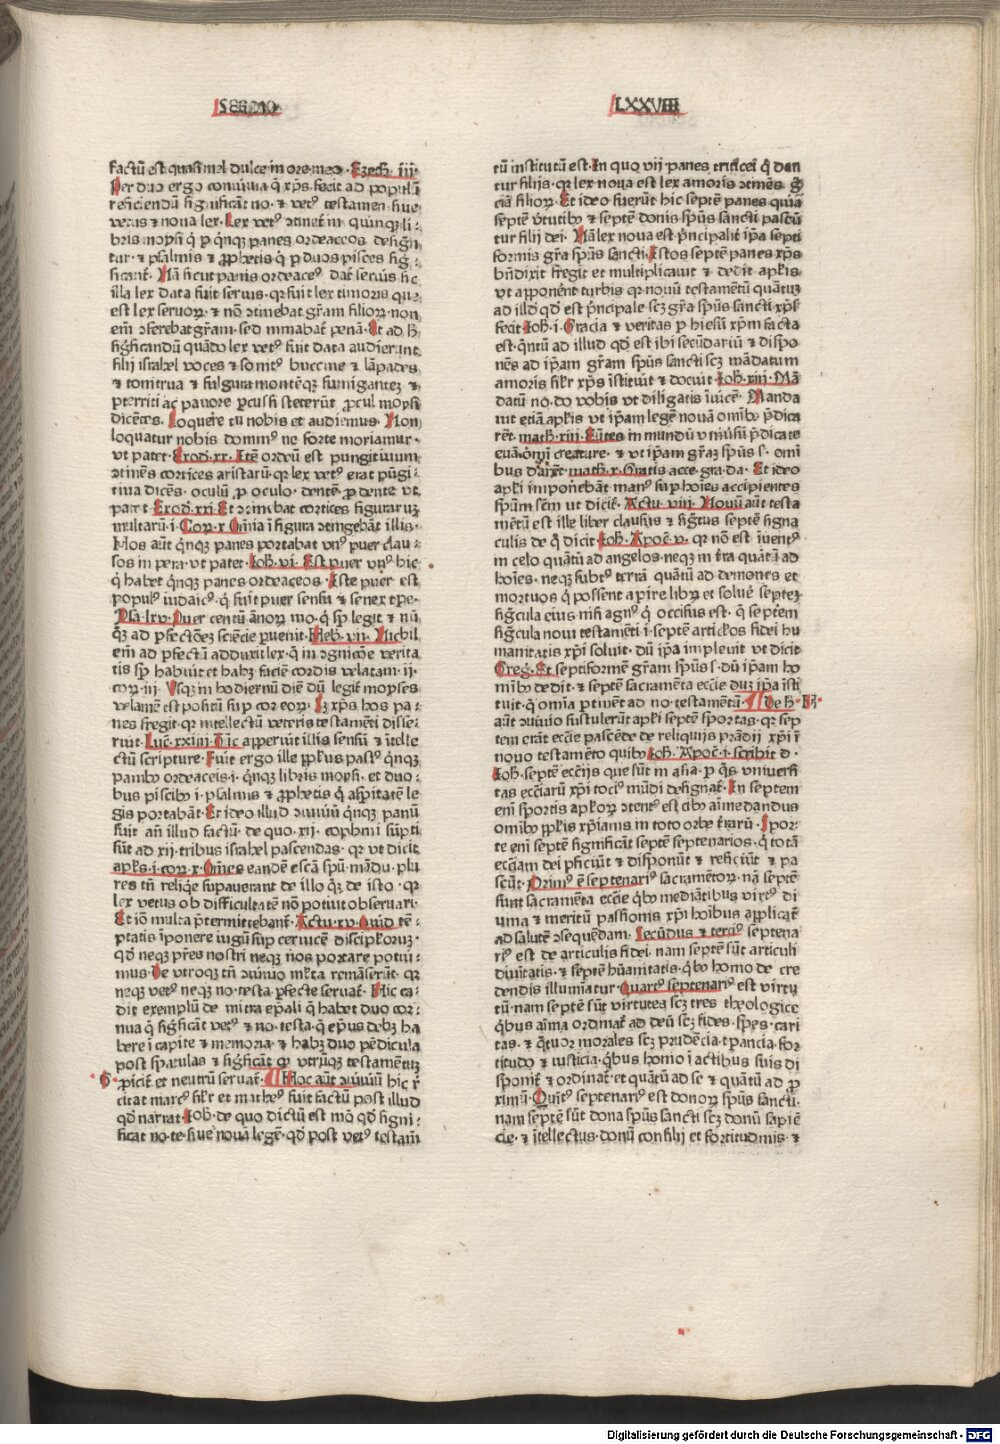 SERMO
LXXVIII
factū est quasi mel dulce in ore meo · Ezech · iij ·
Per duo ergo conuiuia q̄ xp̄s fecit ad populū
reficiendū significāt no · ⁊ vetꝰ testamen · siue
vetus ⁊ noua lex · Lex vetꝰ ꝯtinet̄ in quinqꝫ li ⸗
bris moysi q̄ p̱ qn̄qꝫ panes ordeaceos designā
tur · ⁊ psalmis ⁊ ꝓphetis q̄ p̱ duos pisces sig ⸗
ficant̄ · Nā sicut panis ordeaceꝰ dat̄ seruis sic
illa lex data fuit seruis · qꝛ fuit lex timoris que
est lex seruoꝝ · ⁊ nō ꝯtinebat gr̄am filioꝝ · non
em̄ ꝯferebat gr̄am · sed minabat̄ penā · Et ad h̄
siḡficandū quādo lex vetꝰ fuit data audierunt
filij israhel voces ⁊ sonitū buccine ⁊ lāpades
⁊ tonitrua ⁊ fulgura montēqꝫ fumigantez ⁊
p̱territi ac pauore p̱cussi steterūt ꝓcul moysi
dicētes · Loquere tu nobis et audiemus · Non
loquatur nobis dominꝰ ne forte moriamur ·
vt patet · Exod · xx · Itē ordeū est pungitiuum
ꝯtinēs cortices aristarū · qꝛ lex vetꝰ erat pūgi ⸗
tiua dicēs · oculū ꝓ oculo · dentē ꝓ dente vt
patet · Exod · xxi · Et ꝯtinebat cortices figuraruꝫ
multarū · i · Corꝝ · x · Om̄ia ī figura ꝯtingebāt illis ·
Hos aūt qn̄qꝫ panes portabat vnꝰ puer clau ⸗
sos in pera · vt patet · Joh̄ · vi · Est puer vnꝰ hic
q̄ habet qn̄qꝫ panes ordeaceos · Iste puer est
populꝰ iudaicꝰ · q̄ fuit puer sensu ⁊ senex tp̄e ·
Ysa · lxv · Puer centū ānorꝝ mo · q̄ sp̄ legit ⁊ nū
q̄ꝫ ad p̱fectōeꝫ sciēcie p̱uenit · Heb · vij · Nichil
em̄ ad p̱fectū adduxit lex · q̄ in ꝯgnicōe verita
tis sp̄ habuit et habꝫ faciē cordis velatam · ij ·
corꝝ · iij · Vsqꝫ in hodiernū diē dū legit̄ moyses
velamē est positū sup̱ cor eorꝝ · Iꝫ xp̄s hos pa ⸗
nes fregit · qꝛ intellectū veteris testamēti disse ⸗
ruit · Luc · xxiiij · Tūc apperuit illis sensū ⁊ ītelle ⸗
ctū scripture · Fuit ergo ille pp̄lus pastꝰ qn̄qꝫ
panibꝰ ordeaceis · i · qn̄qꝫ libris moysi · et duo ⸗
bus piscibꝰ · i · psalmis ⁊ ꝓphetis q̄ asp̱itatē le ⸗
gis portabāt · Et ideo illud ꝯuiuiū qn̄qꝫ panū
fuit añ illud factū · de quo · xij · cophini sūpti
sūt ad xij · tribus israhel pascendas · qꝛ vt dicit
apl̄s · i · corꝝ · x · Om̄es eandē escā spū · mādu · plu ⸗
res tn̄ reliq̄e supauerant de illo q̄ꝫ de isto · qꝛ
lex vetus ob difficultatē nō potuit obseruari ·
Et iō multa p̄termittebant̄ · Actu · xv · Quid tē ⸗
ptatis īponere iugū sup̱ ceruicē discipl̄oruꝫ ·
qd̄ neqꝫ pr̄es nostri neqꝫ nos portare potui ⸗
mus · De vtroqꝫ tn̄ ꝯuiuio ml̄ta remāserūt · qꝛ
neqꝫ vetꝰ neqꝫ no · testa · p̱fecte seruat̄ · Hic ca ⸗
dit exemplū de mitra ep̄ali q̄ habet duo cor ⸗
nua q̄ siḡficāt vetꝰ ⁊ no · testa · q̄ ep̄us debꝫ ha
bere ī capite ⁊ memoria · ⁊ habꝫ duo pēdicula
post spatulas ⁊ siḡficāt qꝛ vtrūqꝫ testamētuꝫ
ꝓicit̄ et neutrū seruat̄ · Hoc aūt ꝯuiuiū hic r̄
citat marcꝰ sil̄r et matheꝰ fuit factū post illud
qd̄ narrat Joh̄ · de quo dictū est mō qd̄ signi ⸗
ficat no · te · siue nouā legē · qd̄ post vetꝰ testam̄
tū institutū est · In quo vij panes triticei q̄ dan
tur filijs · qꝛ lex noua est lex amoris ꝯtinēs gr̄
ciā filioꝝ · Et ideo fuerūt hic septē panes quia
septē v̄tutibꝰ ⁊ septē donis spūs sancti pascū
tur filij dei · Nā lex noua est p̄ncipalit̄ ip̄a septi
formis gr̄a spūs sancti · Istos septē panes xp̄s
bn̄dixit fregit et multiplicauit ⁊ dedit apl̄is
vt apponer̄ent turbis qꝛ nouū testamētū quātuꝫ
ad illd̄ qd̄ est p̄ncipale scꝫ gr̄a spūs sancti xp̄s
fecit · Joh̄ · i · Gracia ⁊ veritas p̱ hiesū xp̄m facta
est · qn̄tū ad illud qd̄ est ibi secūdariū ⁊ dispo ⸗
nēs ad ip̄am gr̄am spūs sancti scꝫ mādatum
amoris sil̄r xp̄s īstituit ⁊ docuit · Joh̄ · xiij · Mā
datū no · do vobis vt diligatis īuicē · Manda
uit etiā apl̄is vt ip̄am legē nouā om̄ibꝰ p̄dica
rēt · math · xiij · Eūtes in mundū vniūsū p̄dicate
euā · om̄i creature · ⁊ vt ip̄am gr̄aꝫ spūs s · omi
bus dar̄et · math · x · Gratis acce · gra · da · Et ideo
apl̄i imponebāt manꝰ sup̱ hoīes accipientes
spm̄sem vt dicit̄ · Actu · viij · Nouū aūt testa
mētū est ille liber clausus ⁊ siḡtus septē signa
culis de q̄ dicit Joh̄ · Apoc̄ · v · qꝛ nō est īuentꝰ
in celo quātū ad angelos · neqꝫ in tr̄a quātū ad
hoīes · neqꝫ subtꝰ terrā quātū ad demones et
mortuos q̄ possent apire librꝝ et soluē septeꝫ
siḡcula eius nisi agnꝰ q̄ occisus est · q̄ septem
siḡcula noui testamēti · i · septē articl̄os fidei hu
manitatis xp̄i soluit · dū ip̄a impleuit vt dicit
Greg · Et septiformē gr̄am spūs s · dū ip̄am ho
mībꝰ dedit · ⁊ septē sacramēta ecc̄ie duꝫ ip̄a īsti
tuit · q̄ om̄ia p̱tinēt ad no · testamētū · De h̄
aūt ꝯuiuio sustulerūt apl̄i septē sportas · qꝛ sep
tem erāt ecc̄ie pascēde de reliquijs prādij xp̄i ī
nouo testamēto quibꝰ Joh̄ · Apoc̄ · i · scribit d ·
Joh̄ · septē ecc̄ijs que sūt in asia · p̱ q̄s vniuersi
tas ecc̄iarū xp̄i tociꝰ mūdi designat̄ · In septem
em̄ sportis apl̄oꝝ ꝯtentꝰ est cibꝰ aīme dandus
om̄ibꝰ pp̄lis xp̄ianis in toto orbe tr̄arū · Spor ⸗
te em̄ septē significāt septē septenarios · q̄ totā
ecc̄iam dei p̱ficiūt ⁊ disponūt ⁊ reficiūt ⁊ pa
scūt · Primꝰ ē septenariꝰ sacramētoꝝ · nā septē
sunt sacramēta ecc̄ie q̄bꝰ mediātibus virtꝰ di
uina ⁊ meritū passionis xp̄i hoībus applicat̄
ad salutē ꝯsequēdam · Secūdus ⁊ terciꝰ septena
riꝰ est de articulis fidei · nam septē sūt articuli
diuītatis · ⁊ septē hūanitatis · q̄bꝰ homo de cre
dendis illumiatur · Quartꝰ septenariꝰ est virtu
tū · nam septē sūt virtutes scꝫ tres theologice
q̄bus aīma ordinat̄ ad deū scꝫ fides · spes · cari
tas · ⁊ q̄tuor morales scꝫ prudēcia · tp̱ancia · for
titudo ⁊ iusticia · q̄bus homo ī actibus suis di
sponit̄ ⁊ ordinat̄ · et quātū ad se ⁊ quātū ad ꝓ
ximū · Quītꝰ septenariꝰ est donoꝝ spūs sancti ·
nam septē sūt dona spūs sancti scꝫ donū sapiē
cie · ⁊ ītellectus · donū consilij et fortitudinis · ⁊
Digitalisierung gefördert durch die Deutsche Forschungsgemeinschaft - DFG